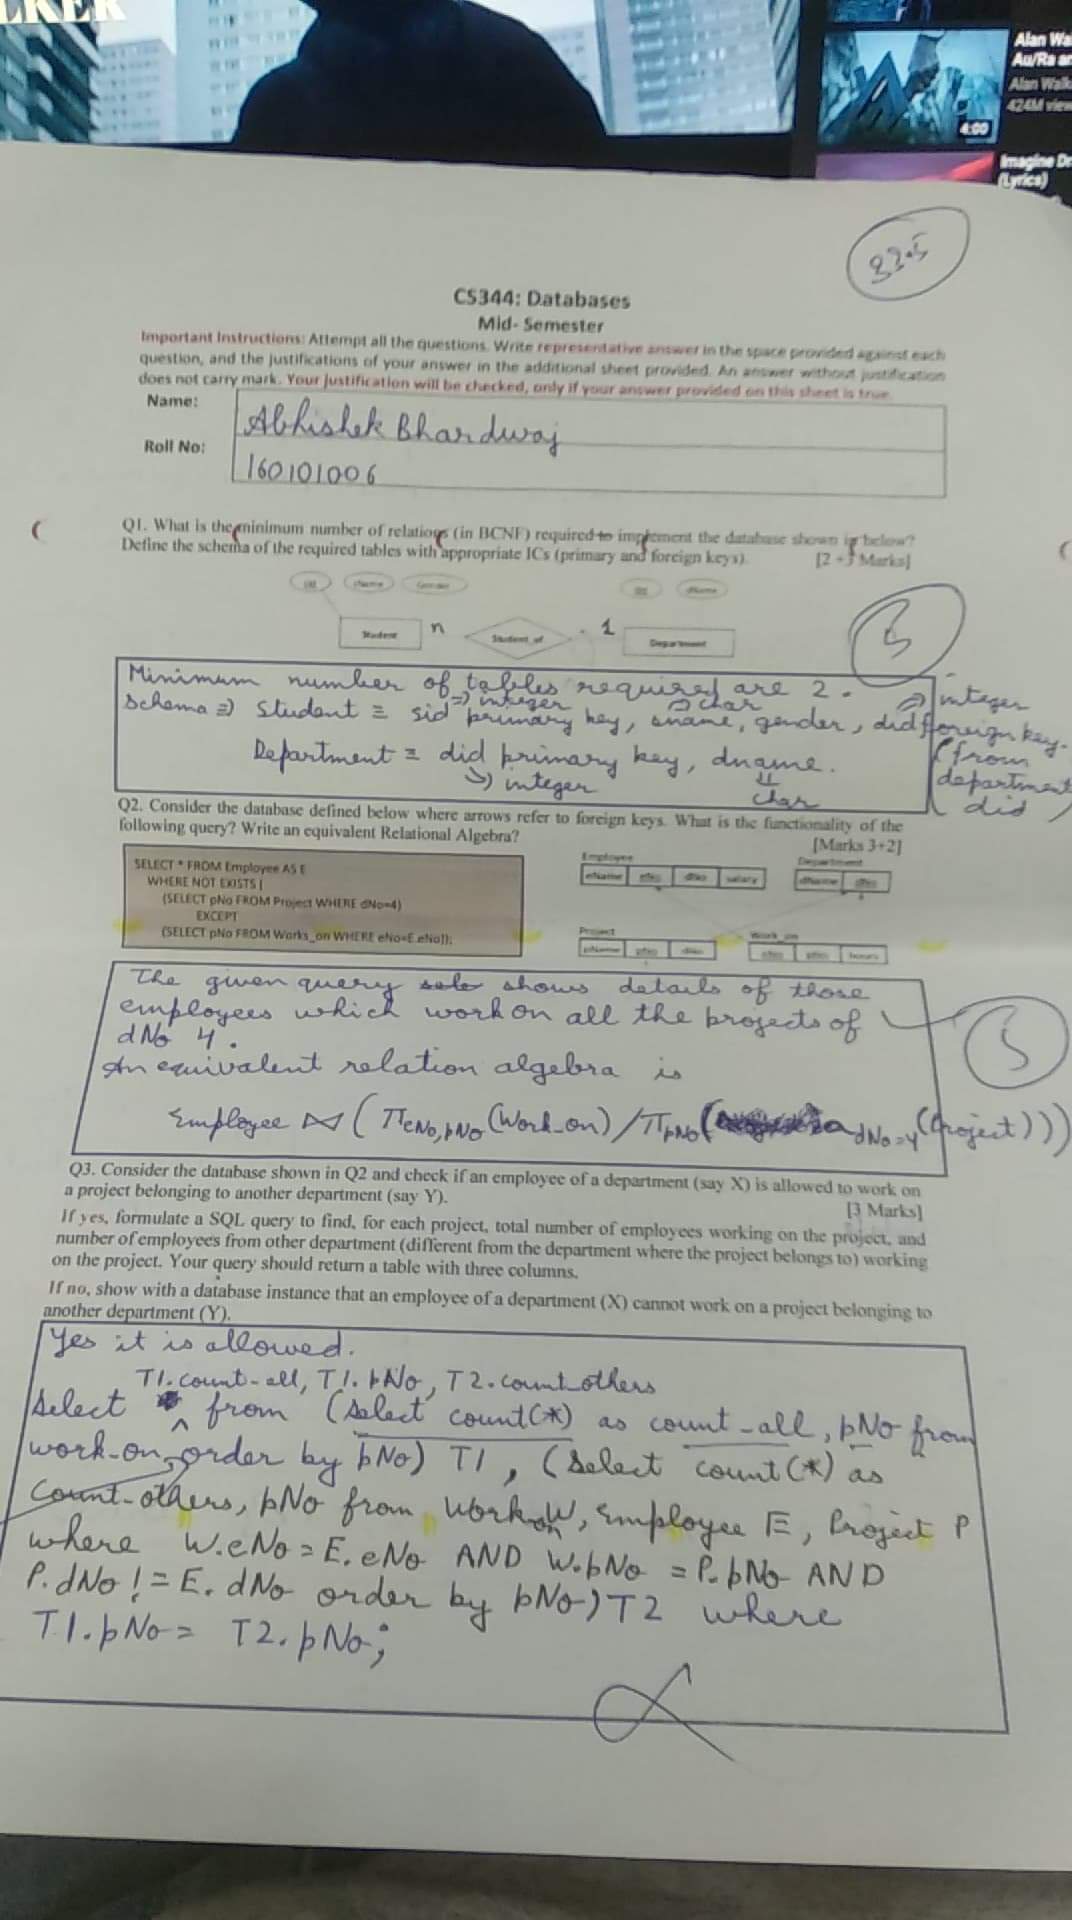 LKER
Alan Wa
Au/Ra an
Alan Walk
424M view
4:00
Imagine Dr
(Lyrics)
33.5
CS344: Databases
Mid- Semester
Important Instructions: Attempt all the questions. Write representative answer in the space provided against each
question, and the justifications of your answer in the additional sheet provided. An answer without justification
does not carry mark. Your justification will be checked, only if your answer provided on this sheet is true.
Name:
Abhishek Bhardwaj
Roll No:
160101006
Q1. What is the minimum number of relations (in BCNF) required to implement the database shown in below?
Define the schema of the required tables with appropriate ICs (primary and foreign keys). [2 +3 Marks]
sName
Gender
dName
Student
n
Student_of
1
Department
Minimum number of tables required are 2.
⇒ integer
⇒ char
⇒ integer
Schema ⇒ Student ≡ sid primary key, sname, gender, did foreign key.
(from
department
did)
Department ≡ did primary key, dname.
⇒ integer
char
Q2. Consider the database defined below where arrows refer to foreign keys. What is the functionality of the
following query? Write an equivalent Relational Algebra? [Marks 3+2]
SELECT * FROM Employee AS E
WHERE NOT EXISTS (
(SELECT pNo FROM Project WHERE dNo=4)
EXCEPT
(SELECT pNo FROM Works_on WHERE eNo=E.eNo));
Employee
eName eNo dNo salary
Department
dName dNo
Project
pName pNo dNo
Work_on
eNo pNo hours
The given query shows details of those
employees which work on all the projects of
dNo 4.
An equivalent relation algebra is
Employee ⋈ (π eNo, pNo (Work_on) / π pNo ( σ dNo=4 (Project)))
5
Q3. Consider the database shown in Q2 and check if an employee of a department (say X) is allowed to work on
a project belonging to another department (say Y). [3 Marks]
If yes, formulate a SQL query to find, for each project, total number of employees working on the project, and
number of employees from other department (different from the department where the project belongs to) working
on the project. Your query should return a table with three columns.
If no, show with a database instance that an employee of a department (X) cannot work on a project belonging to
another department (Y).
Yes it is allowed.
T1.count-all, T1.pNo, T2.count_others
Select from (Select count(*) as count_all, pNo from
work_on order by pNo) T1, (Select count(*) as
Count-others, pNo from Work_on W, Employee E, Project P
where W.eNo = E.eNo AND W.pNo = P.pNo AND
P.dNo != E.dNo order by pNo) T2 where
T1.pNo = T2.pNo;